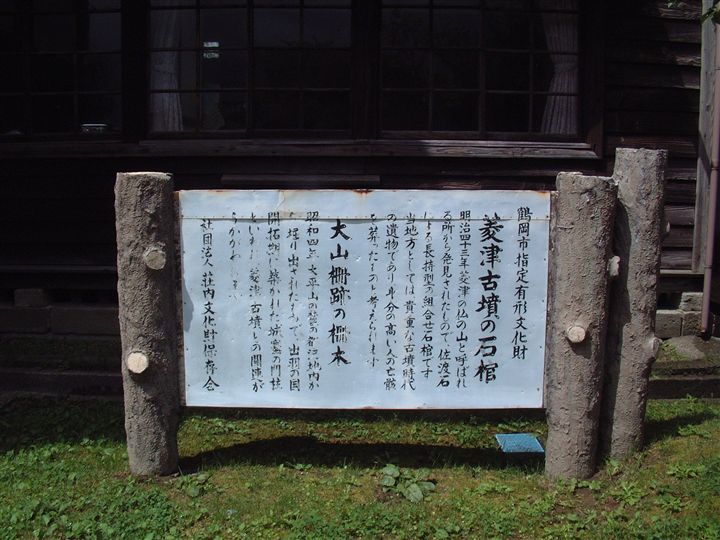 鶴岡市指定有形文化財
菱津古墳の石棺
明治四十三年菱津の仏の山と呼ばれ
る所から発見されたもので、佐渡石
による長持型の組合せ石棺です
当地方としては貴重な古墳時代
の遺物であり身分の高い人の亡骸
を葬ったものと考えられます
大山柵跡の柵木
昭和四年、太平山の麓の
掘り出されたもので、出羽の国
開拓期に築かれた城塞の門柱
といわれ、菱津古墳との関連が
うかがわれ
社団法人 荘内文化財保存会